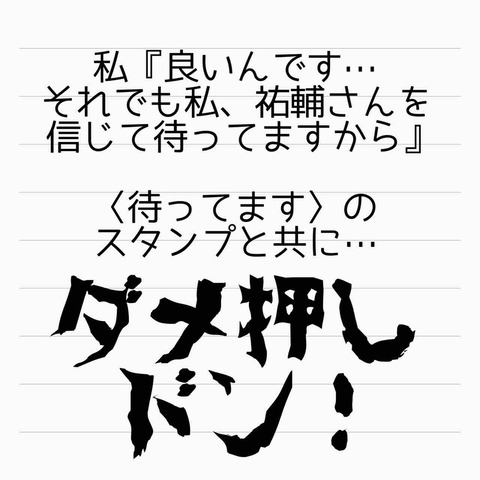 私『良いんです…
それでも私、祐輔さんを
信じて待ってますから』
〈待ってます〉の
スタンプと共に…
ダメ押し
ドン！